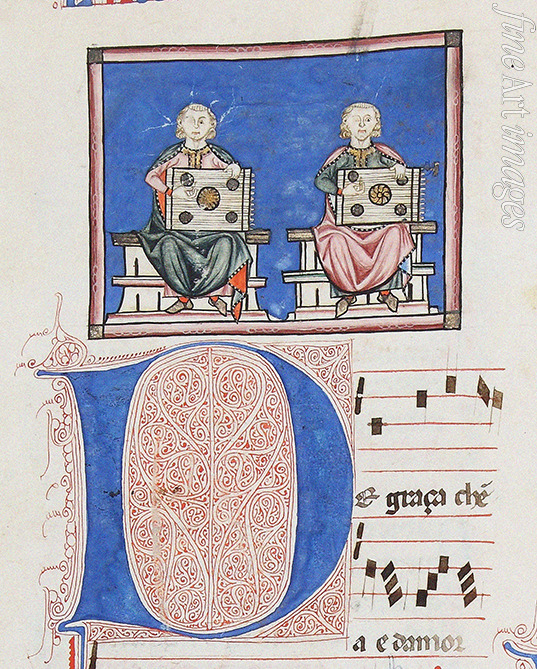 fine Art images
DE graça chẽ
a e damor